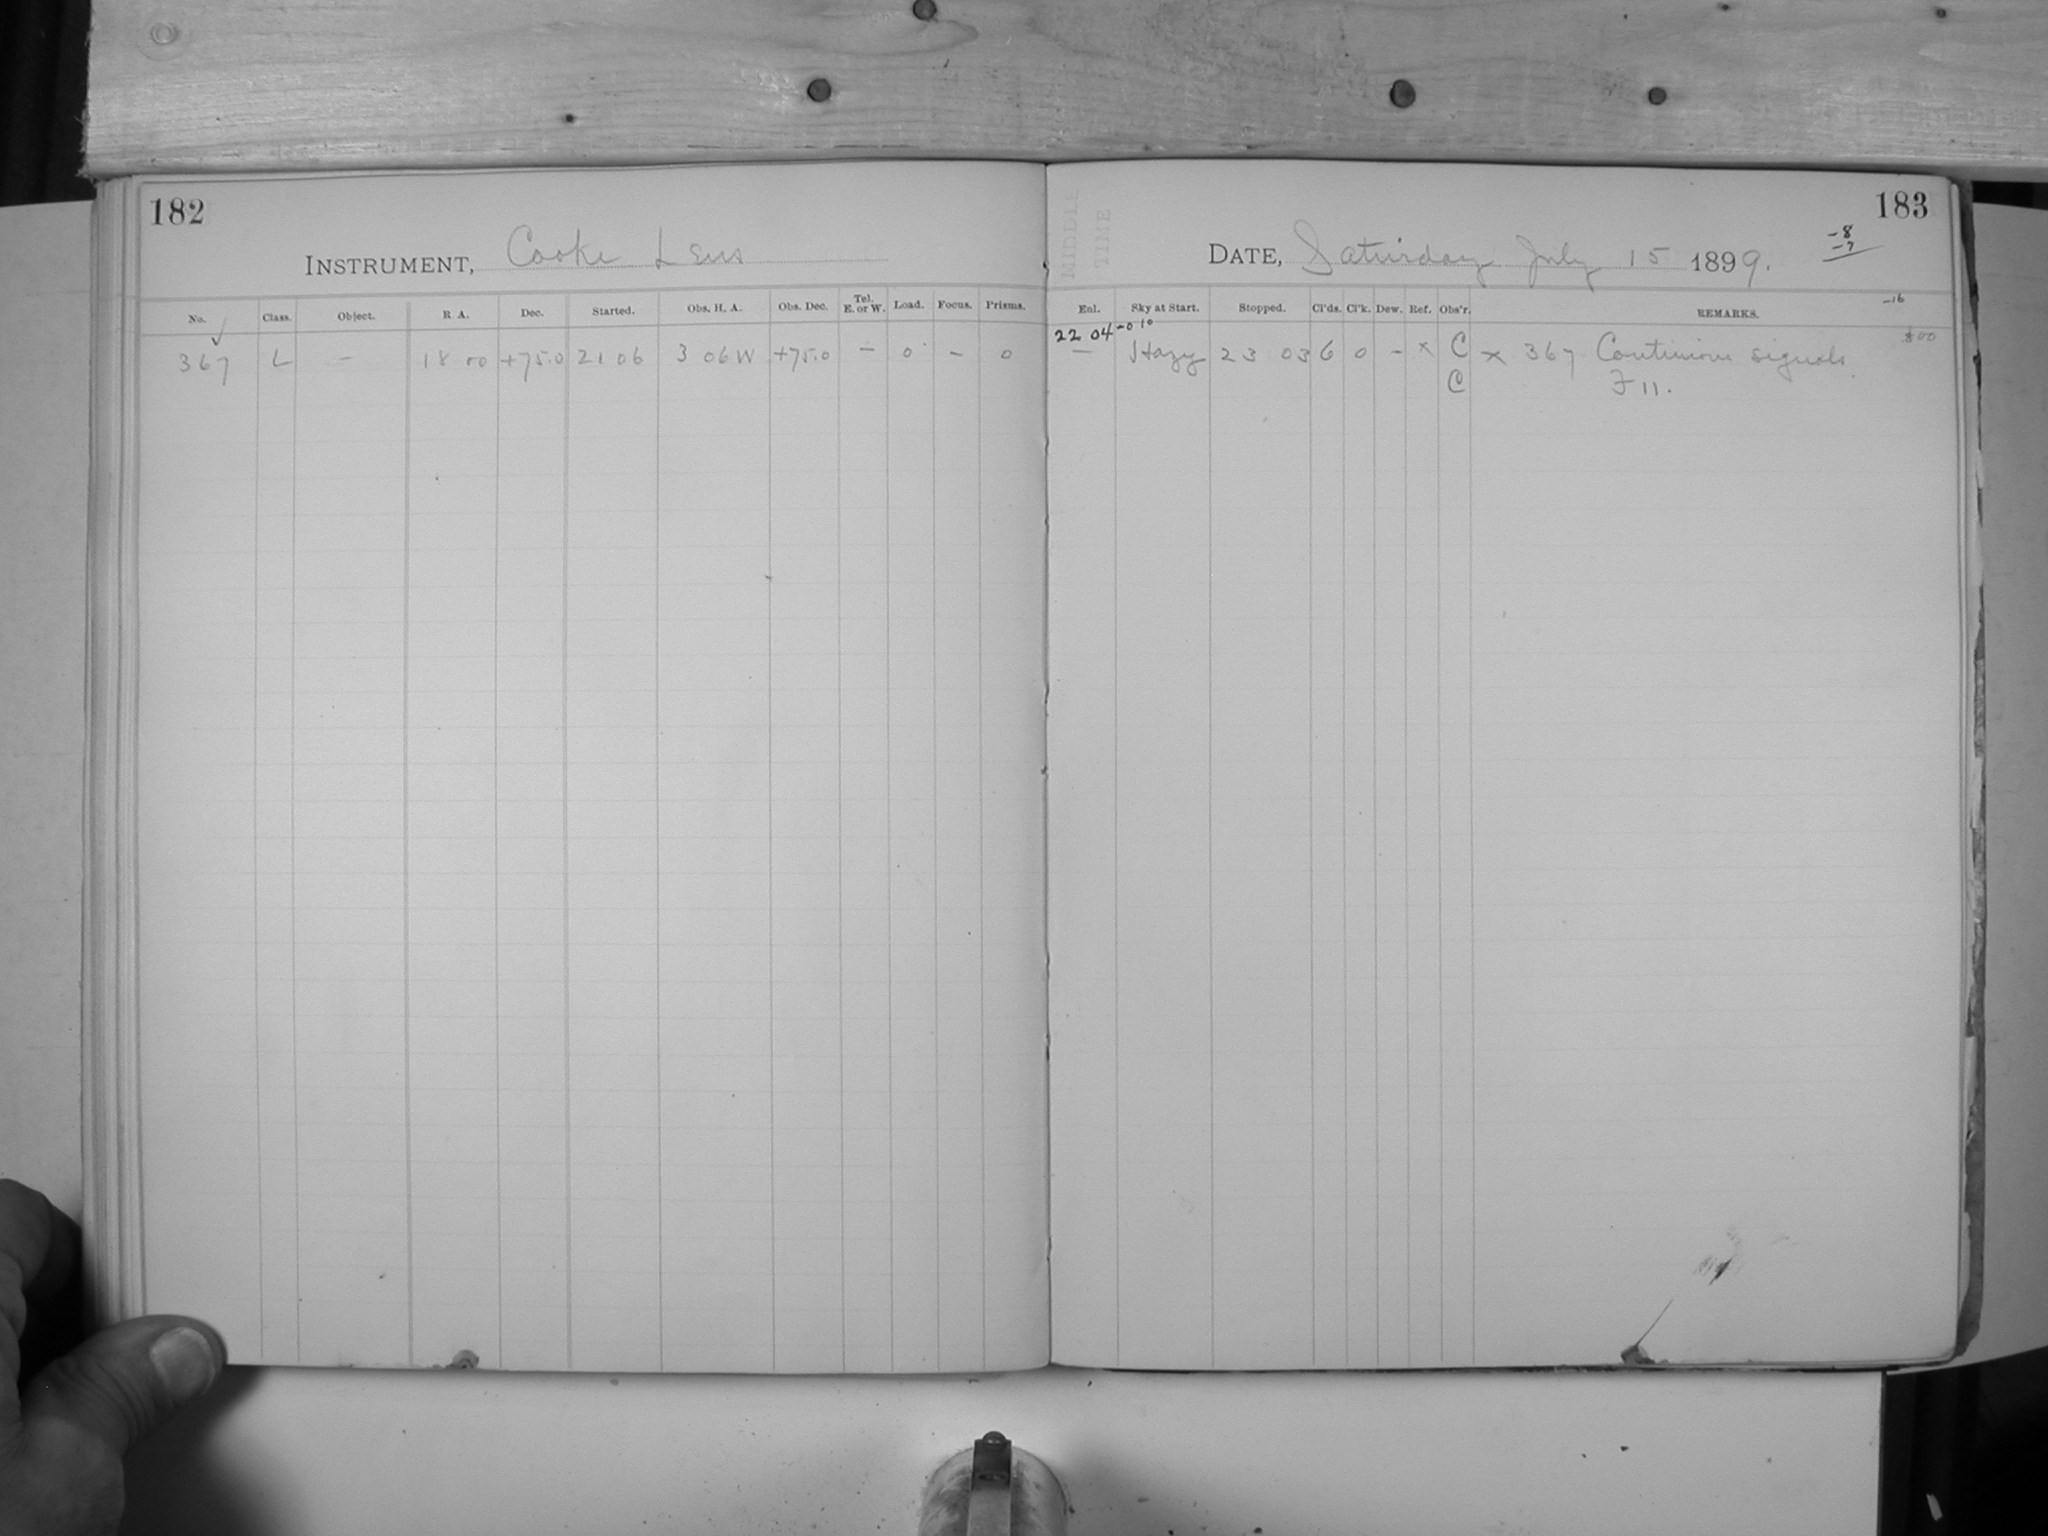 182
INSTRUMENT, Cooke Lens
No. Class. Object. R. A. Dec. Started. Obs. H. A. Obs. Dec. Tel. E. or W. Load. Focus. Prisms.
367 L — 18 00 +75.0 21 06 3 06 W +75.0 — 0 — 0
183
MIDDLE
TIME
DATE, Saturday July 15 1899.
-8
-7
-16
Enl. Sky at Start. Stopped. Cl'ds. Cl'k. Dew. Ref. Obs'r. REMARKS.
22 04 -0 10
800
— Hazy 23 03 6 0 - x C x 367 Continious signals
C F 11.